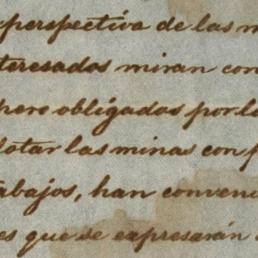 perspectiva de las m
teresados miran con
pero obligados por lo
lotar las minas con p
abajos, han conveni
es que se expresarán